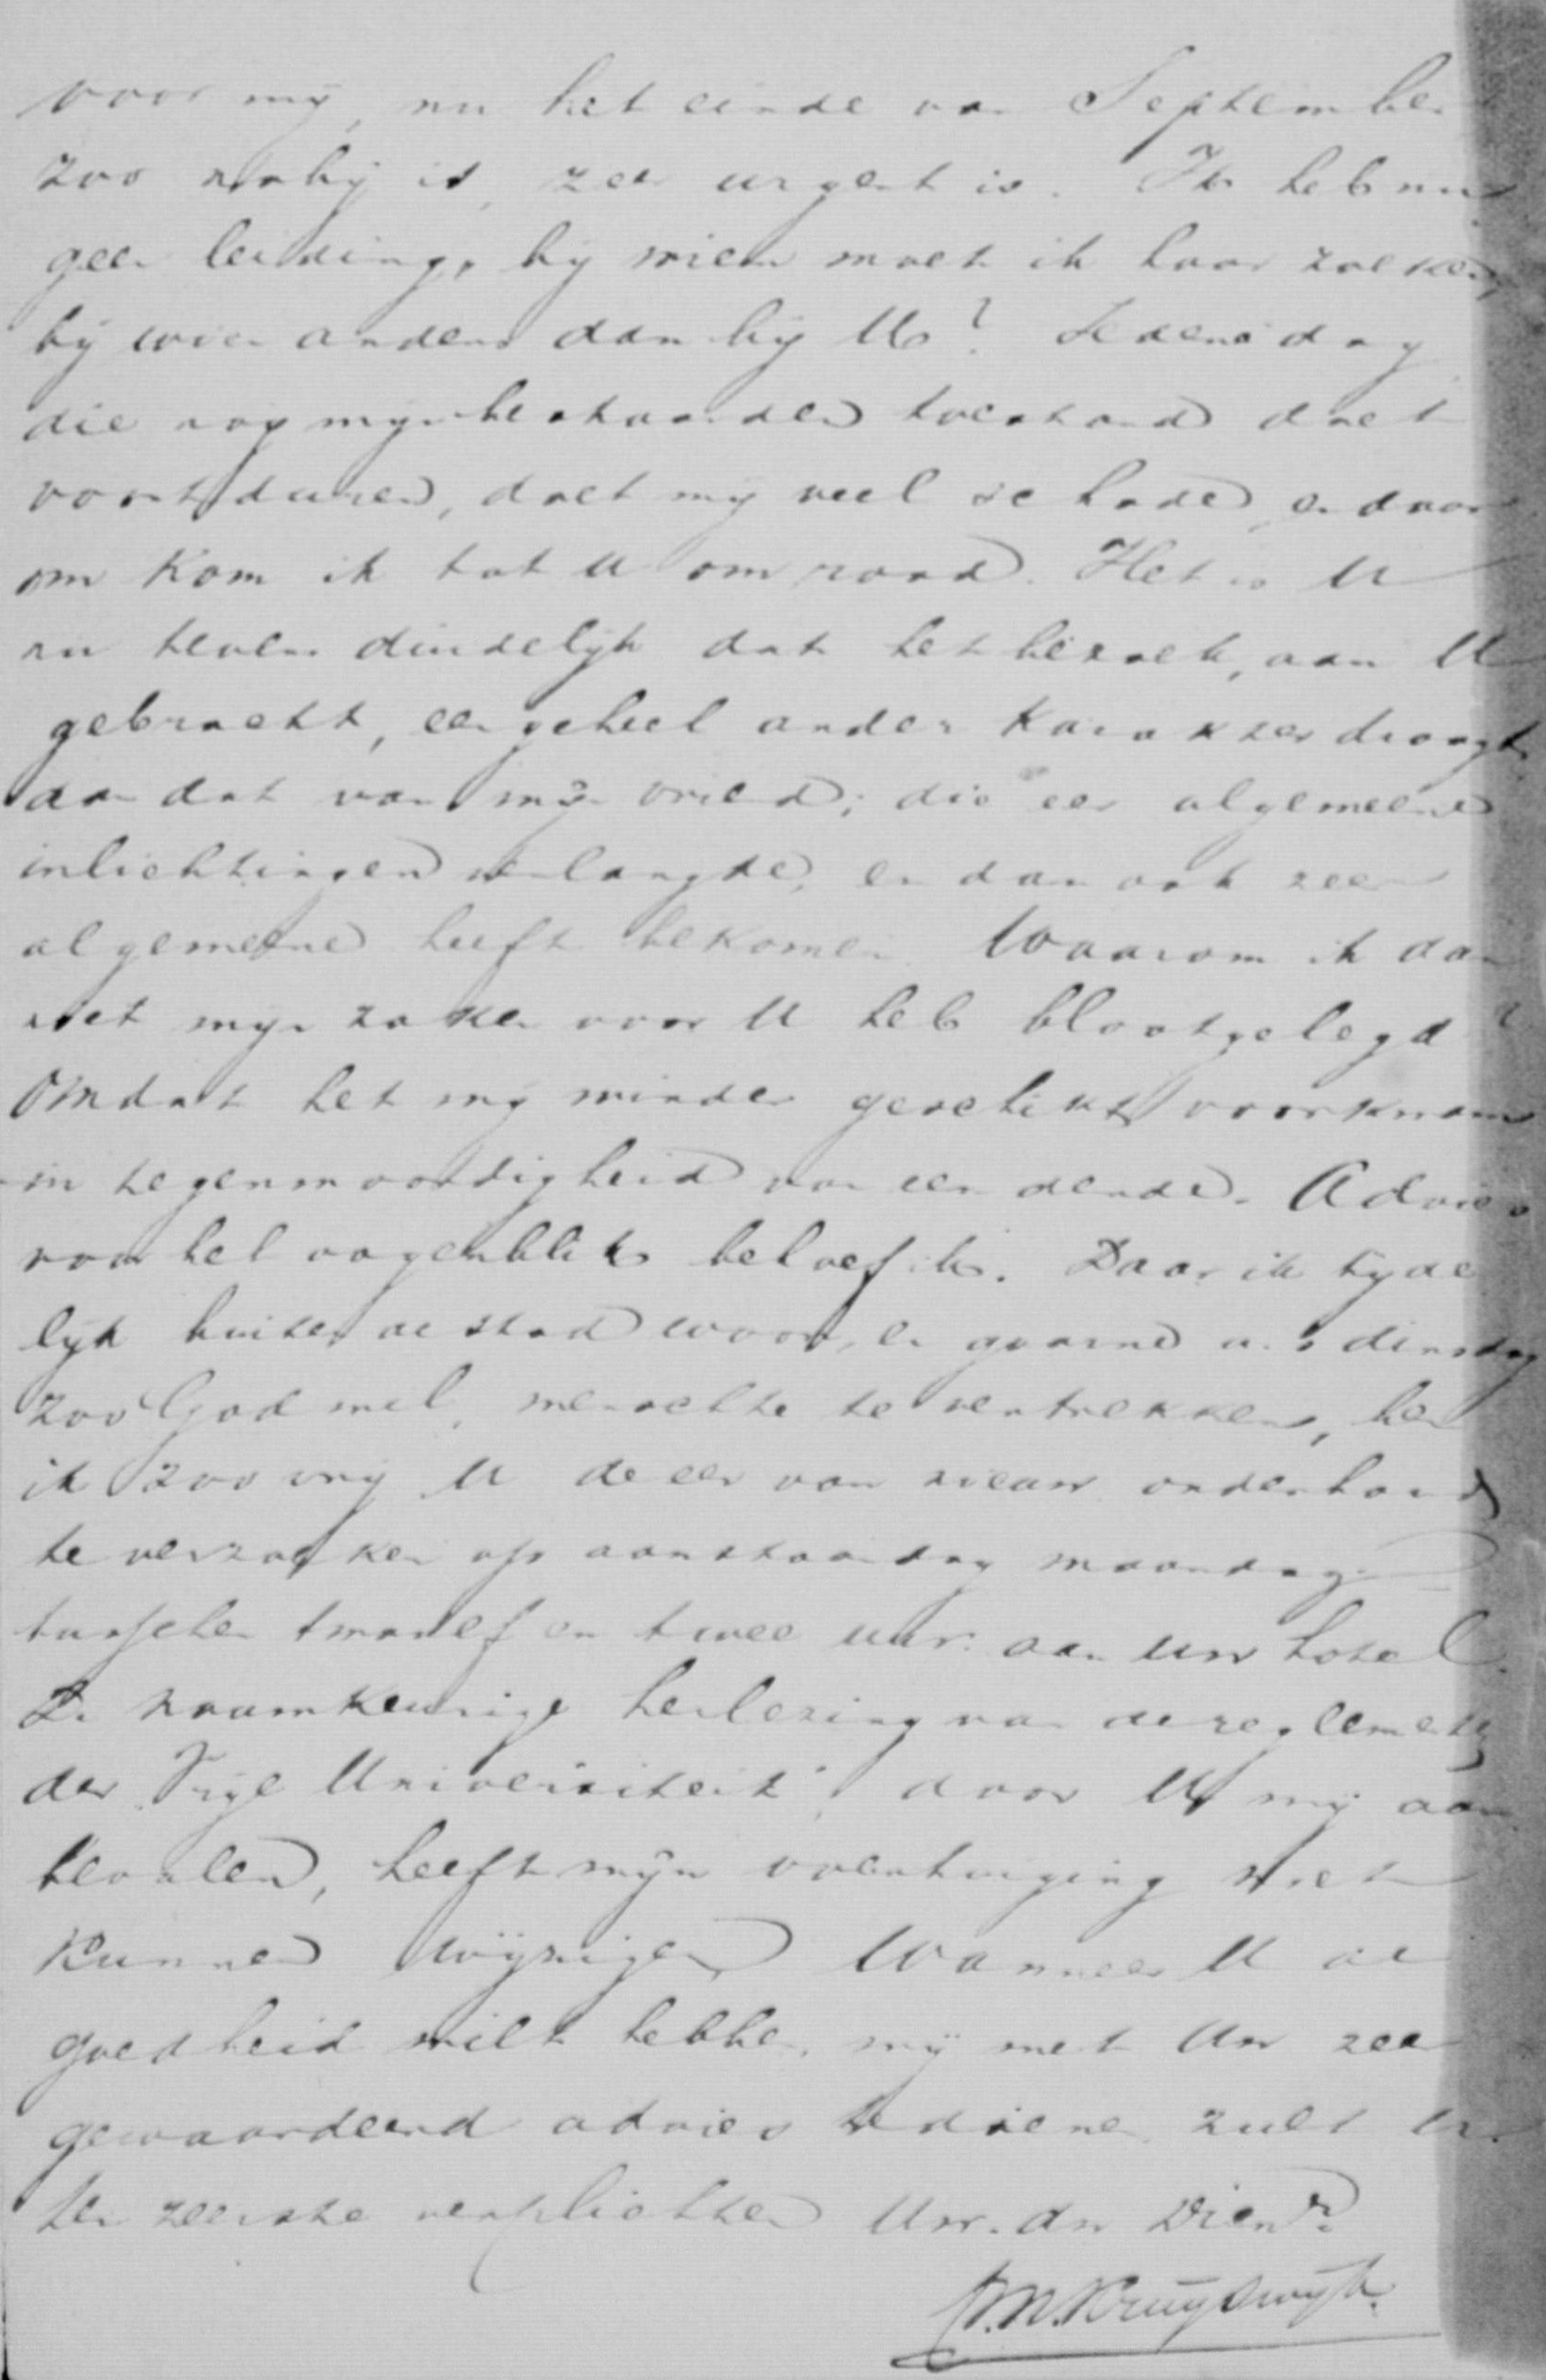 voor mij, nu het einde van September
zoo nabij is, zeer urgent is. Ik heb nu
geen leiding, bij wien moet ik haar zoeken,
bij wien anders dan bij U? Iedere dag
die nog mijn bestaanden toestand doet
voortduren, doet mij veel schade, en daar
om kom ik tot U om raad. Het is U
nu tevens duidelijk dat het bezoek, aan U
gebracht, een geheel ander karakter draagt
dan dat van mijn vriend; die een algemeene
inlichtingen verlangde, en dan ook zeer
algemeene heeft bekomen. Waarom ik dan
niet mijn zaken voor U heb blootgelegd?
Omdat het mij minder geschikt voorkwam
in tegenwoordigheid van een derde. Advies
voor het oogenblik behoef ik. Daar ik tijde
lijk buiten de stad woon, en gaarne a.s dinsdag
zoo God wil, wenschte te vertrekken, ben
ik zoo vrij U de eer van nieuw onderhoud
te verzoeken op aanstaanden maandag
tusschen twaalf en twee uur aan Uw hotel.
De naauwkeurige herlezing van de reglementen
der "Vrije Universiteit", door U mij aan
bevolen, heeft mijn overtuiging niet
kunnen wijzigen. Wanneer U de
goedheid wilt hebben, mij met Uw zeer
gewaardeerd advies te dienen, zult U
ten zeerste verplichten Uw. dw Dienr.
Kruyswijk.